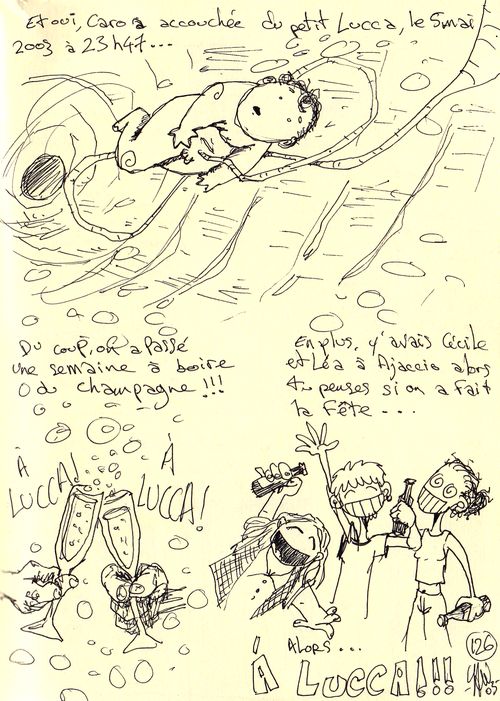 Et oui, Caro a accouchée du petit Lucca, le 5 mai
2003 à 23h47...
Du coup, on a passé
une semaine à boire
du champagne!!!
En plus, y'avais Cécile
et Léa à Ajaccio alors
tu penses si on a fait
la fête...
À
LUCCA!
À
LUCCA!
Alors...
À LUCCA!!!
126
03